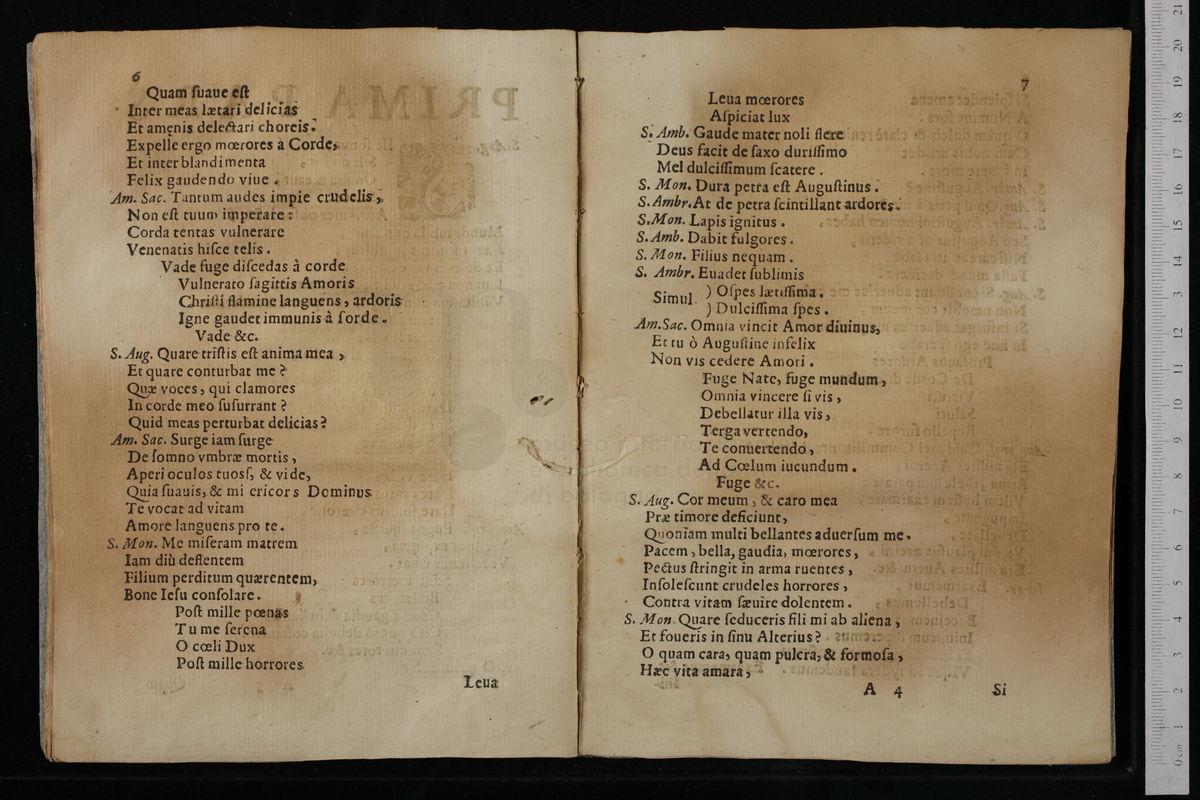 6
Quam ſuaue eſt
Inter meas lætari delicias
Et amęnis delectari choreis.
Expelle ergo mœrores a Corde,
Et inter blandimenta
Felix gaudendo viue .
Am. Sac. Tantum audes impie crudelis ,
Non eſt tuum imperare :
Corda tentas vulnerare
Venenatis hiſce telis .
Vade fuge diſcedas à corde
Vulnerato ſagittis Amoris
Chriſti flamine languens , ardoris
Igne gaudet immunis à ſorde .
Vade &c.
S. Aug. Quare triſtis eſt anima mea ,
Et quare conturbat me ?
Quæ voces , qui clamores
In corde meo ſuſurrant ?
Quid meas perturbat delicias ?
Am. Sac. Surge iam ſurge
De ſomno vmbræ mortis ,
Aperi oculos tuosſ, & vide,
Quia ſuauis, & mi cricors Dominus
Te vocat ad vitam
Amore languens pro te .
S. Mon. Me miſeram matrem
Iam diù deflentem
Filium perditum quærentem,
Bone Ieſu conſolare .
Poſt mille pœnas
Tu me ſerena
O cœli Dux
Poſt mille horrores
Leua
7
Leua mœrores
Aſpiciat lux
S. Amb. Gaude mater noli flere
Deus facit de ſaxo duriſſimo
Mel dulciſſimum ſcatere .
S. Mon. Dura petra eſt Auguſtinus .
S. Ambr. At de petra ſcintillant ardores .
S. Mon. Lapis ignitus .
S. Amb. Dabit fulgores .
S. Mon. Filius nequam .
S. Ambr. Euadet ſublimis
Simul. ) Oſpes lætiſſima .
) Dulciſſima ſpes .
Am. Sac. Omnia vincit Amor diuinus,
Et tu ò Auguſtine infelix
Non vis cedere Amori .
Fuge Nate, fuge mundum ,
Omnia vincere ſi vis ,
Debellatur illa vis ,
Terga vertendo,
Te conuertendo ,
Ad Cœlum iucundum .
Fuge &c.
S. Aug. Cor meum , & caro mea
Præ timore deficiunt,
Quoniam multi bellantes aduerſum me .
Pacem , bella, gaudia, mœrores ,
Pectus ſtringit in arma ruentes ,
Inſoleſcunt crudeles horrores ,
Contra vitam ſæuire dolentem .
S. Mon. Quare ſeduceris fili mi ab aliena ,
Et foueris in ſinu Alterius ?
O quam cara, quam pulcra, & formoſa ,
Hæc vita amara ,
A 4 Si